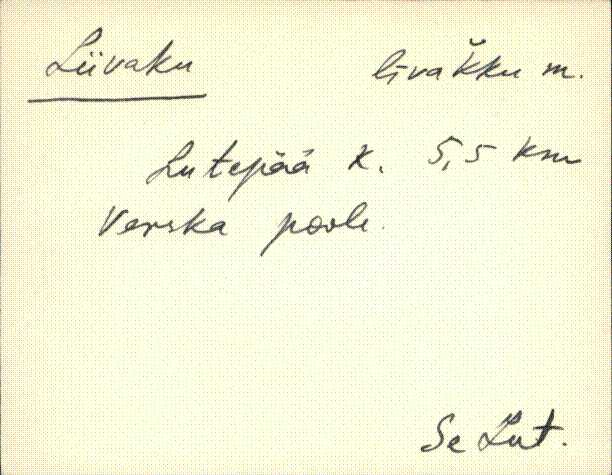 Liivaku līvak̆ku m.
Lutepää k. 5,5 km
Verska poole.
Se Lut.